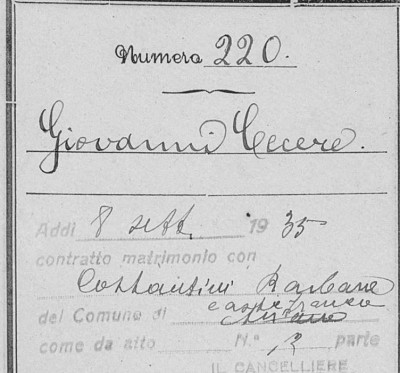 Numero 220.
Giovanni Cecere.
Addì 8 sett. 1935
contratto matrimonio con
Costantini Barbara
del Comune di
come da atto N.° 2 parte
IL CANCELLIERE